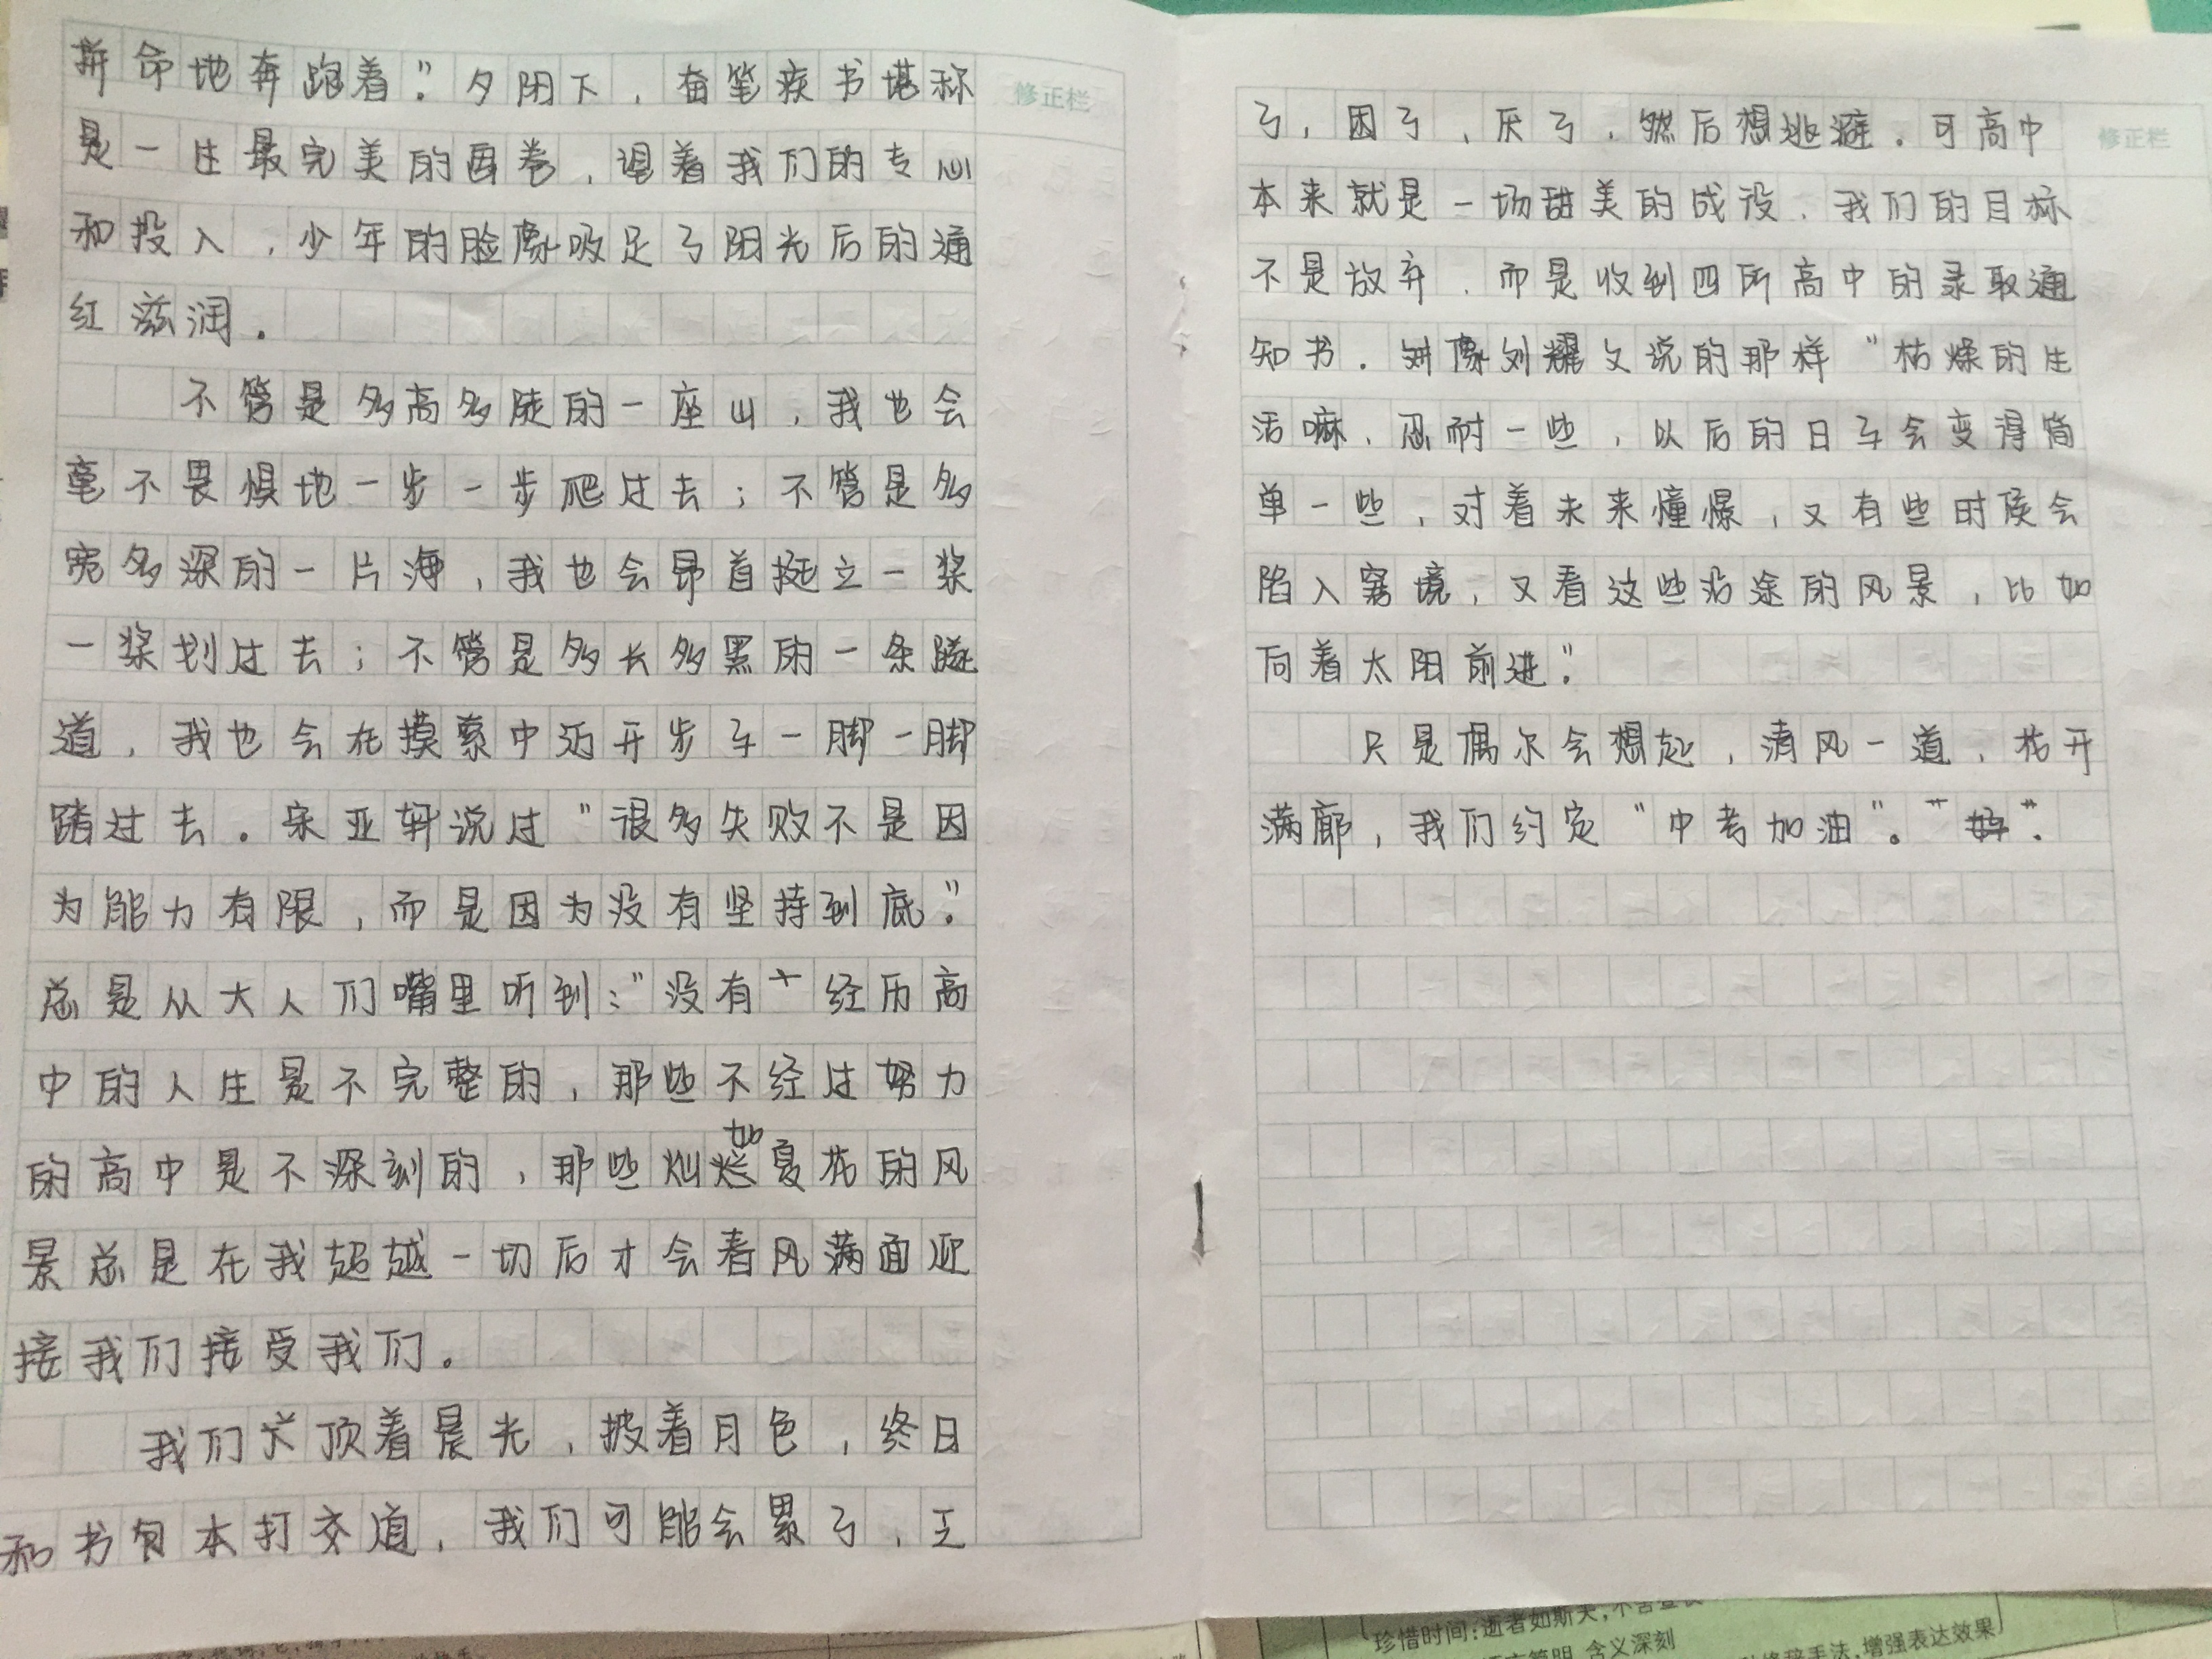 拼命地奔跑着。”夕阳下，奋笔疾书堪称
是一生最完美的画卷，混着我们的专心
和投入，少年的脸像吸足了阳光后的通
红滋润。
不管是多高多陡的一座山，我也会
毫不畏惧地一步一步爬过去；不管是多
宽多深的一片海，我也会昂首挺立一桨
一桨划过去；不管是多长多黑的一条隧
道，我也会在摸索中迈开步子一脚一脚
踏过去。宋亚轩说过“很多失败不是因
为能力有限，而是因为没有坚持到底。”
总是从大人们嘴里听到：“没有经历高
中的人生是不完整的，那些不经过努力
的高中是不深刻的，那些灿烂如夏花的风
景总是在我超越一切后才会春风满面迎
接我们接受我们。
我们头顶着晨光，披着月色，终日
和书包本打交道，我们可能会累了，乏
了，困了，厌了，然后想逃避。可高中
本来就是一场甜美的战役，我们的目标
不是放弃，而是收到四所高中的录取通
知书。就像刘耀文说的那样“枯燥的生
活嘛，忍耐一些，以后的日子会变得简
单一些，对着未来憧憬，又有些时候会
陷入窘境，又看这些沿途的风景，比如
向着太阳前进。”
只是偶尔会想起，清风一道，花开
满廊，我们约定“中考加油”。“好”。
修正栏
修正栏
珍惜时间：逝者如斯夫，不舍昼夜
含义深刻
修辞手法，增强表达效果